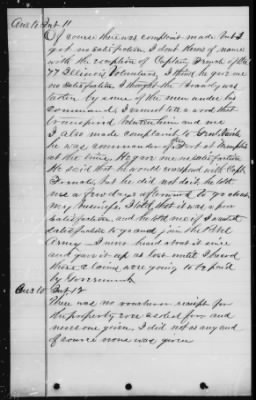 Ans to Int. 11
Of course there was complaint made but I
got no satisfaction I dont know of name
with the exception of Captain French of the
77 Illinois Volunteers, I think he gave me
no satisfaction. I thought the Brandy was
taken by some of the men under his
command. I cannot tell a word that
transpired between him and me
I also made complaint to Genl
he was commander of the Fort at Memphis
at the time. He gave me no satisfaction
He said that he would correspond with Capt
but he did not do it. he told
me a few days afterward to go about
my business. I told that it was a poor
satisfaction, and he told me if I wanted
satisfaction to go and join the Rebel
Army — I never heard about it since
and gave it up as lost until I heard
these claims were going to be paid
by Government
Ans to Int. 12
There was no voucher or receipt for
the property ever asked for and
never one given. I did not as any and
of course none was given